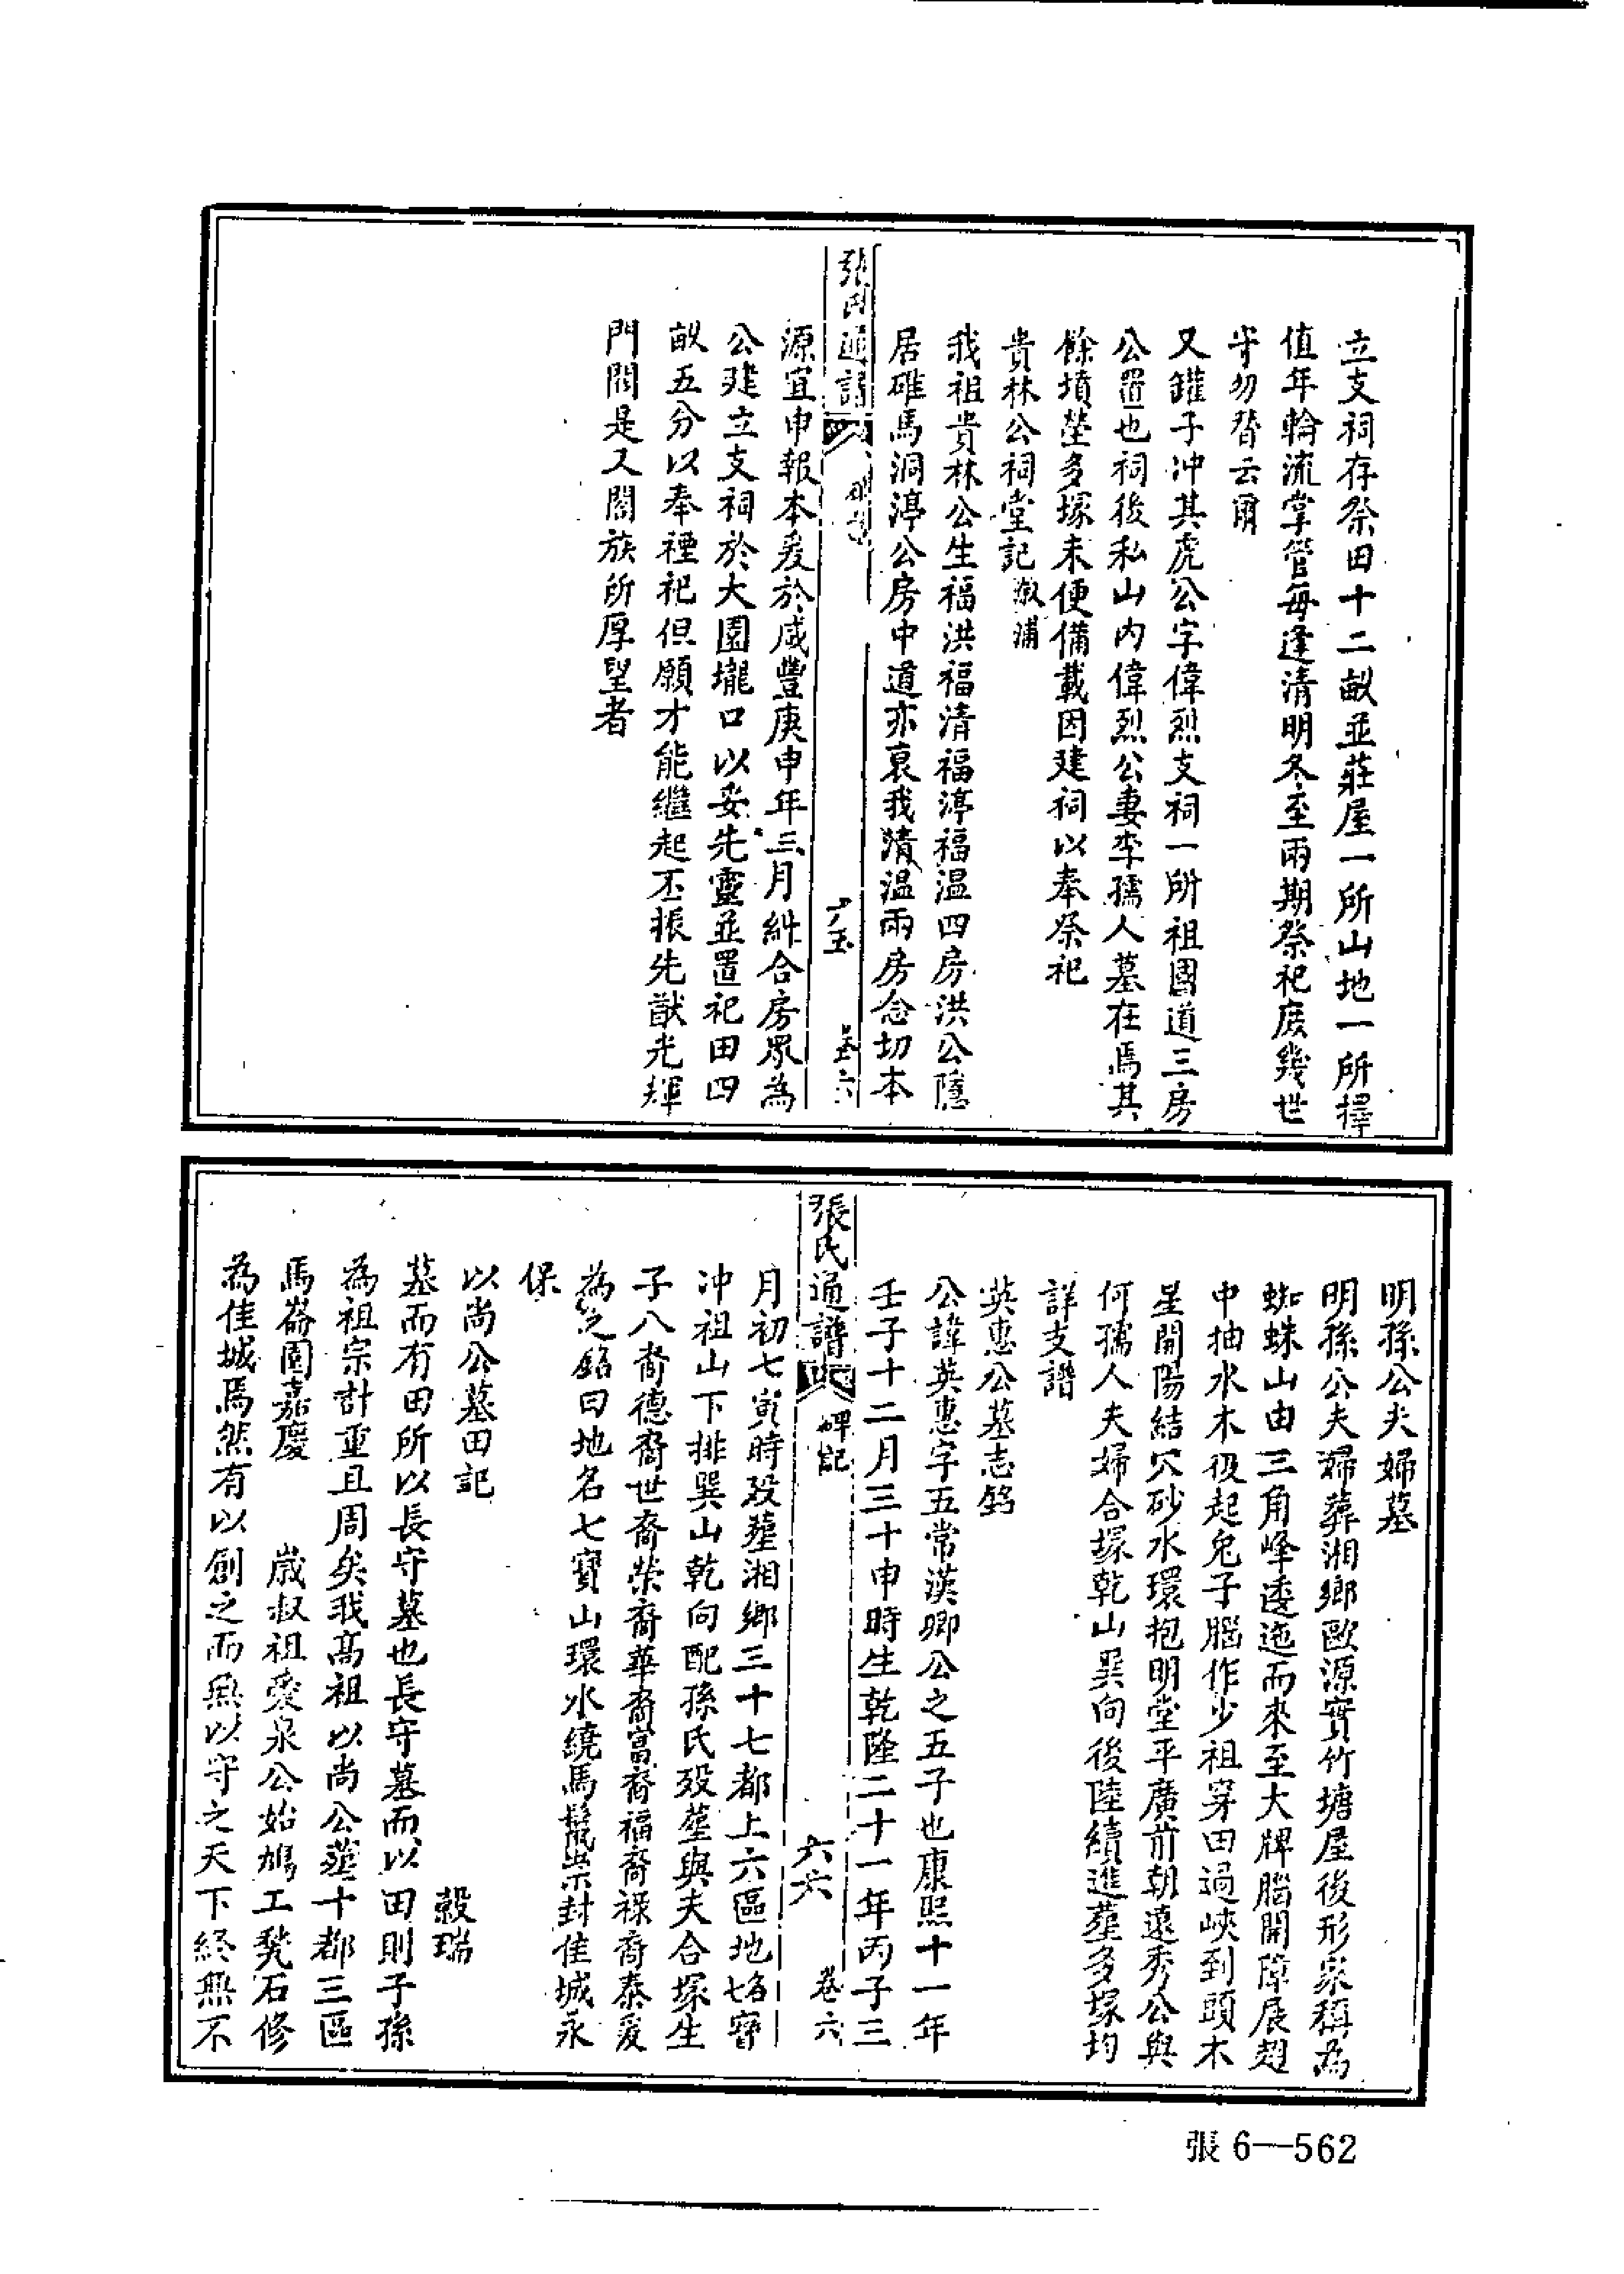 立支祠存祭田十二畝並莊屋一所山地一所擇
值年輪流掌管每逢清明冬至兩期祭祀庶幾世
守勿替云爾
又鑵子沖其虎公字偉烈支祠一所祖國道三房
公置也祠後私山內偉烈公妻李孺人墓在焉其
餘墳塋多塚未便備載因建祠以奉祭祀
貴林公祠堂記 溆浦
我祖貴林公生福洪福清福渟福温四房洪公隱
居碓馬洞渟公房中道亦衰我清温兩房念切本
張氏通譜
卷六
源宜申報本爰於咸豐庚申年三月糾合房眾為
公建立支祠於大園壠口以妥先靈並置祀田四
畝五分以奉禋祀但願才能繼起丕振先猷光輝
門閭是又闔族所厚望者
明孫公夫婦墓
明孫公夫婦葬湘鄉歐源實竹塘屋後形家稱為
蜘蛛山由三角峰逶迤而來至大牌腦開障展翅
中抽水木役起兔子腦作少祖穿田過峽到頭木
星開陽結穴砂水環抱明堂平廣前朝遠秀公與
何孺人夫婦合塚乾山巽向後陸續進塟多塚均
詳支譜
英惠公墓志銘
公諱英惠字五常漢卿公之五子也康熙十一年
壬子十二月三十申時生乾隆二十一年丙子三
張氏通譜
碑記
六六
卷六
月初七寅時歿塟湘鄉三十七都上六區地名寳
沖祖山下排巽山乾向配孫氏歿塟與夫合塚生
子八裔德裔世裔榮裔華裔富裔福裔祿裔泰爰
為之銘曰地名七寶山環水繞馬鬛崇封佳城永
保
以尚公墓田記
穀瑞
墓而有田所以長守墓也長守墓而以田則子孫
為祖宗計重且周矣我高祖以尚公塟十都三區
馬崙園嘉慶 歲叔祖愛泉公始鳩工甃石修
為佳城焉然有以創之而無以守之天下終無不
張6—562